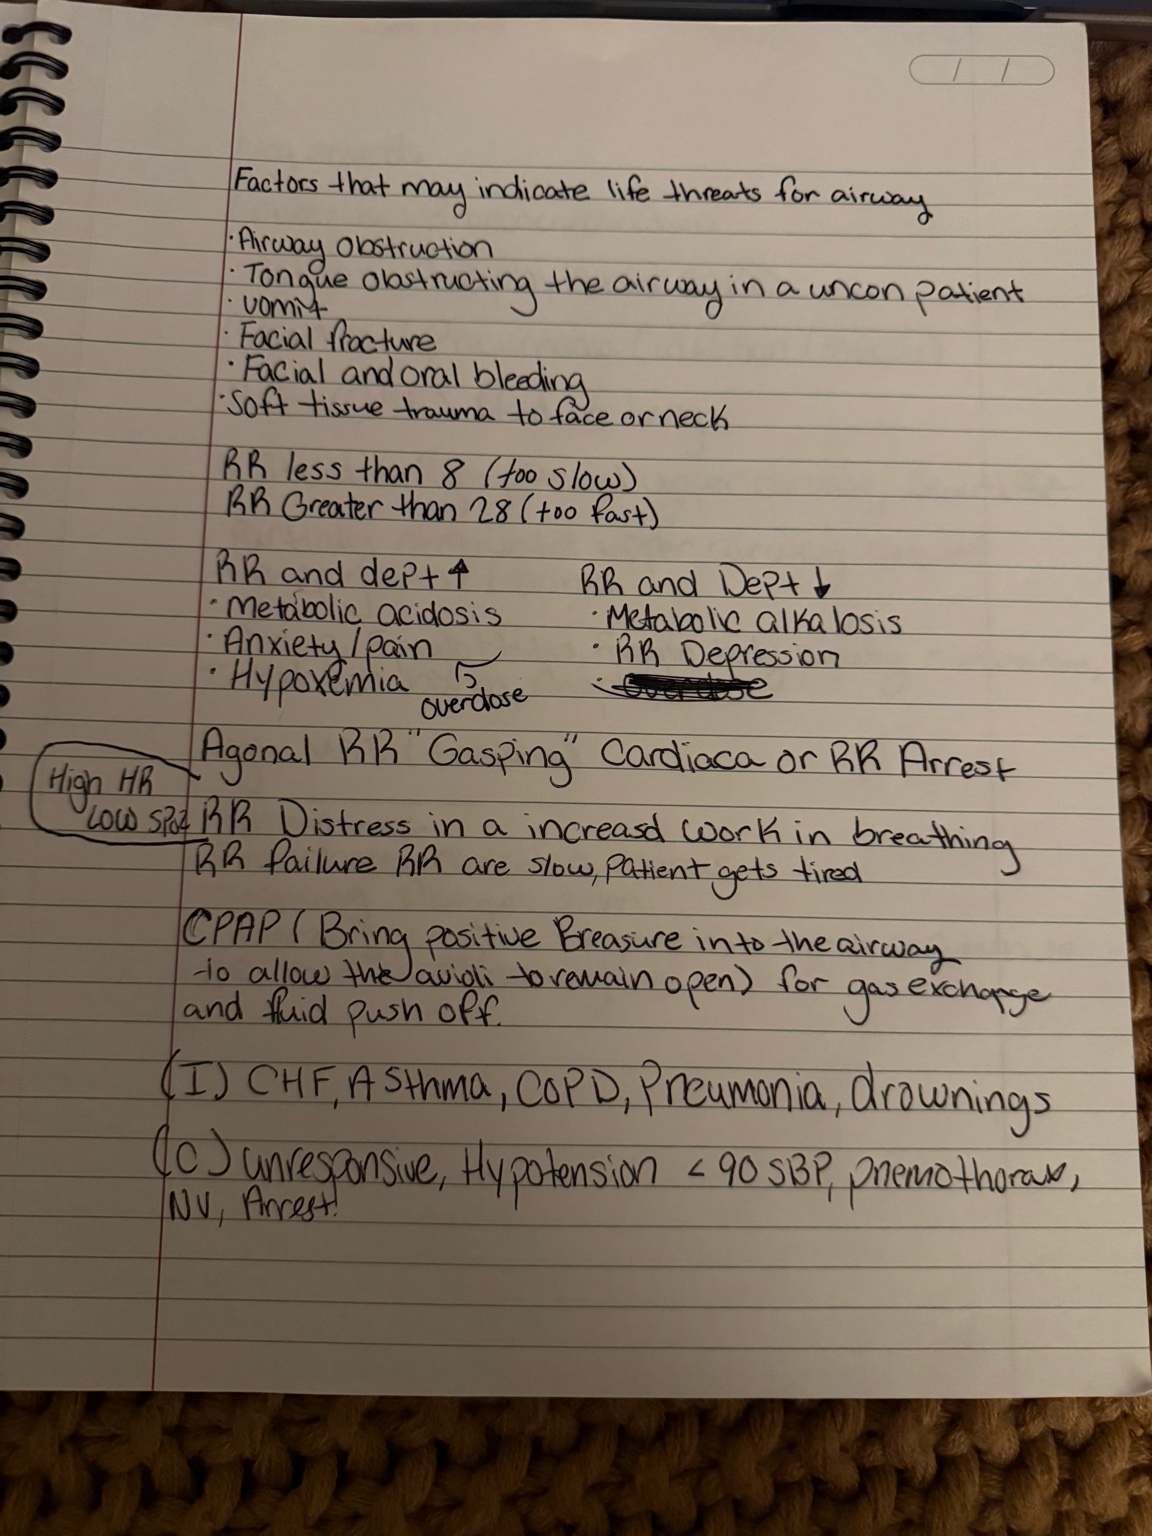 Factors that may indicate life threats for airway
· Airway obstruction
· Tongue obstructing the airway in a uncon patient
· vomit
· Facial fracture
· Facial and oral bleeding
· Soft tissue trauma to face or neck
RR less than 8 (too slow)
RR Greater than 28 (too fast)
RR and dept ↑
· Metabolic acidosis
· Anxiety/pain
· Hypoxemia
RR and Dept ↓
· Metabolic alkalosis
· RR Depression
overdose
Agonal RR "Gasping" Cardiaca or RR Arrest
High HR
Low SPO2
RR Distress in a increasd work in breathing
RR failure RR are slow, patient gets tired
CPAP (Bring positive Breasure into the airway
to allow the avioli to remain open) for gas exchange
and fluid push off.
(I) CHF, Asthma, COPD, Pneumonia, drownings
(C) unresponsive, Hypotension < 90 SBP, pnemothorax,
NV, Arrest!